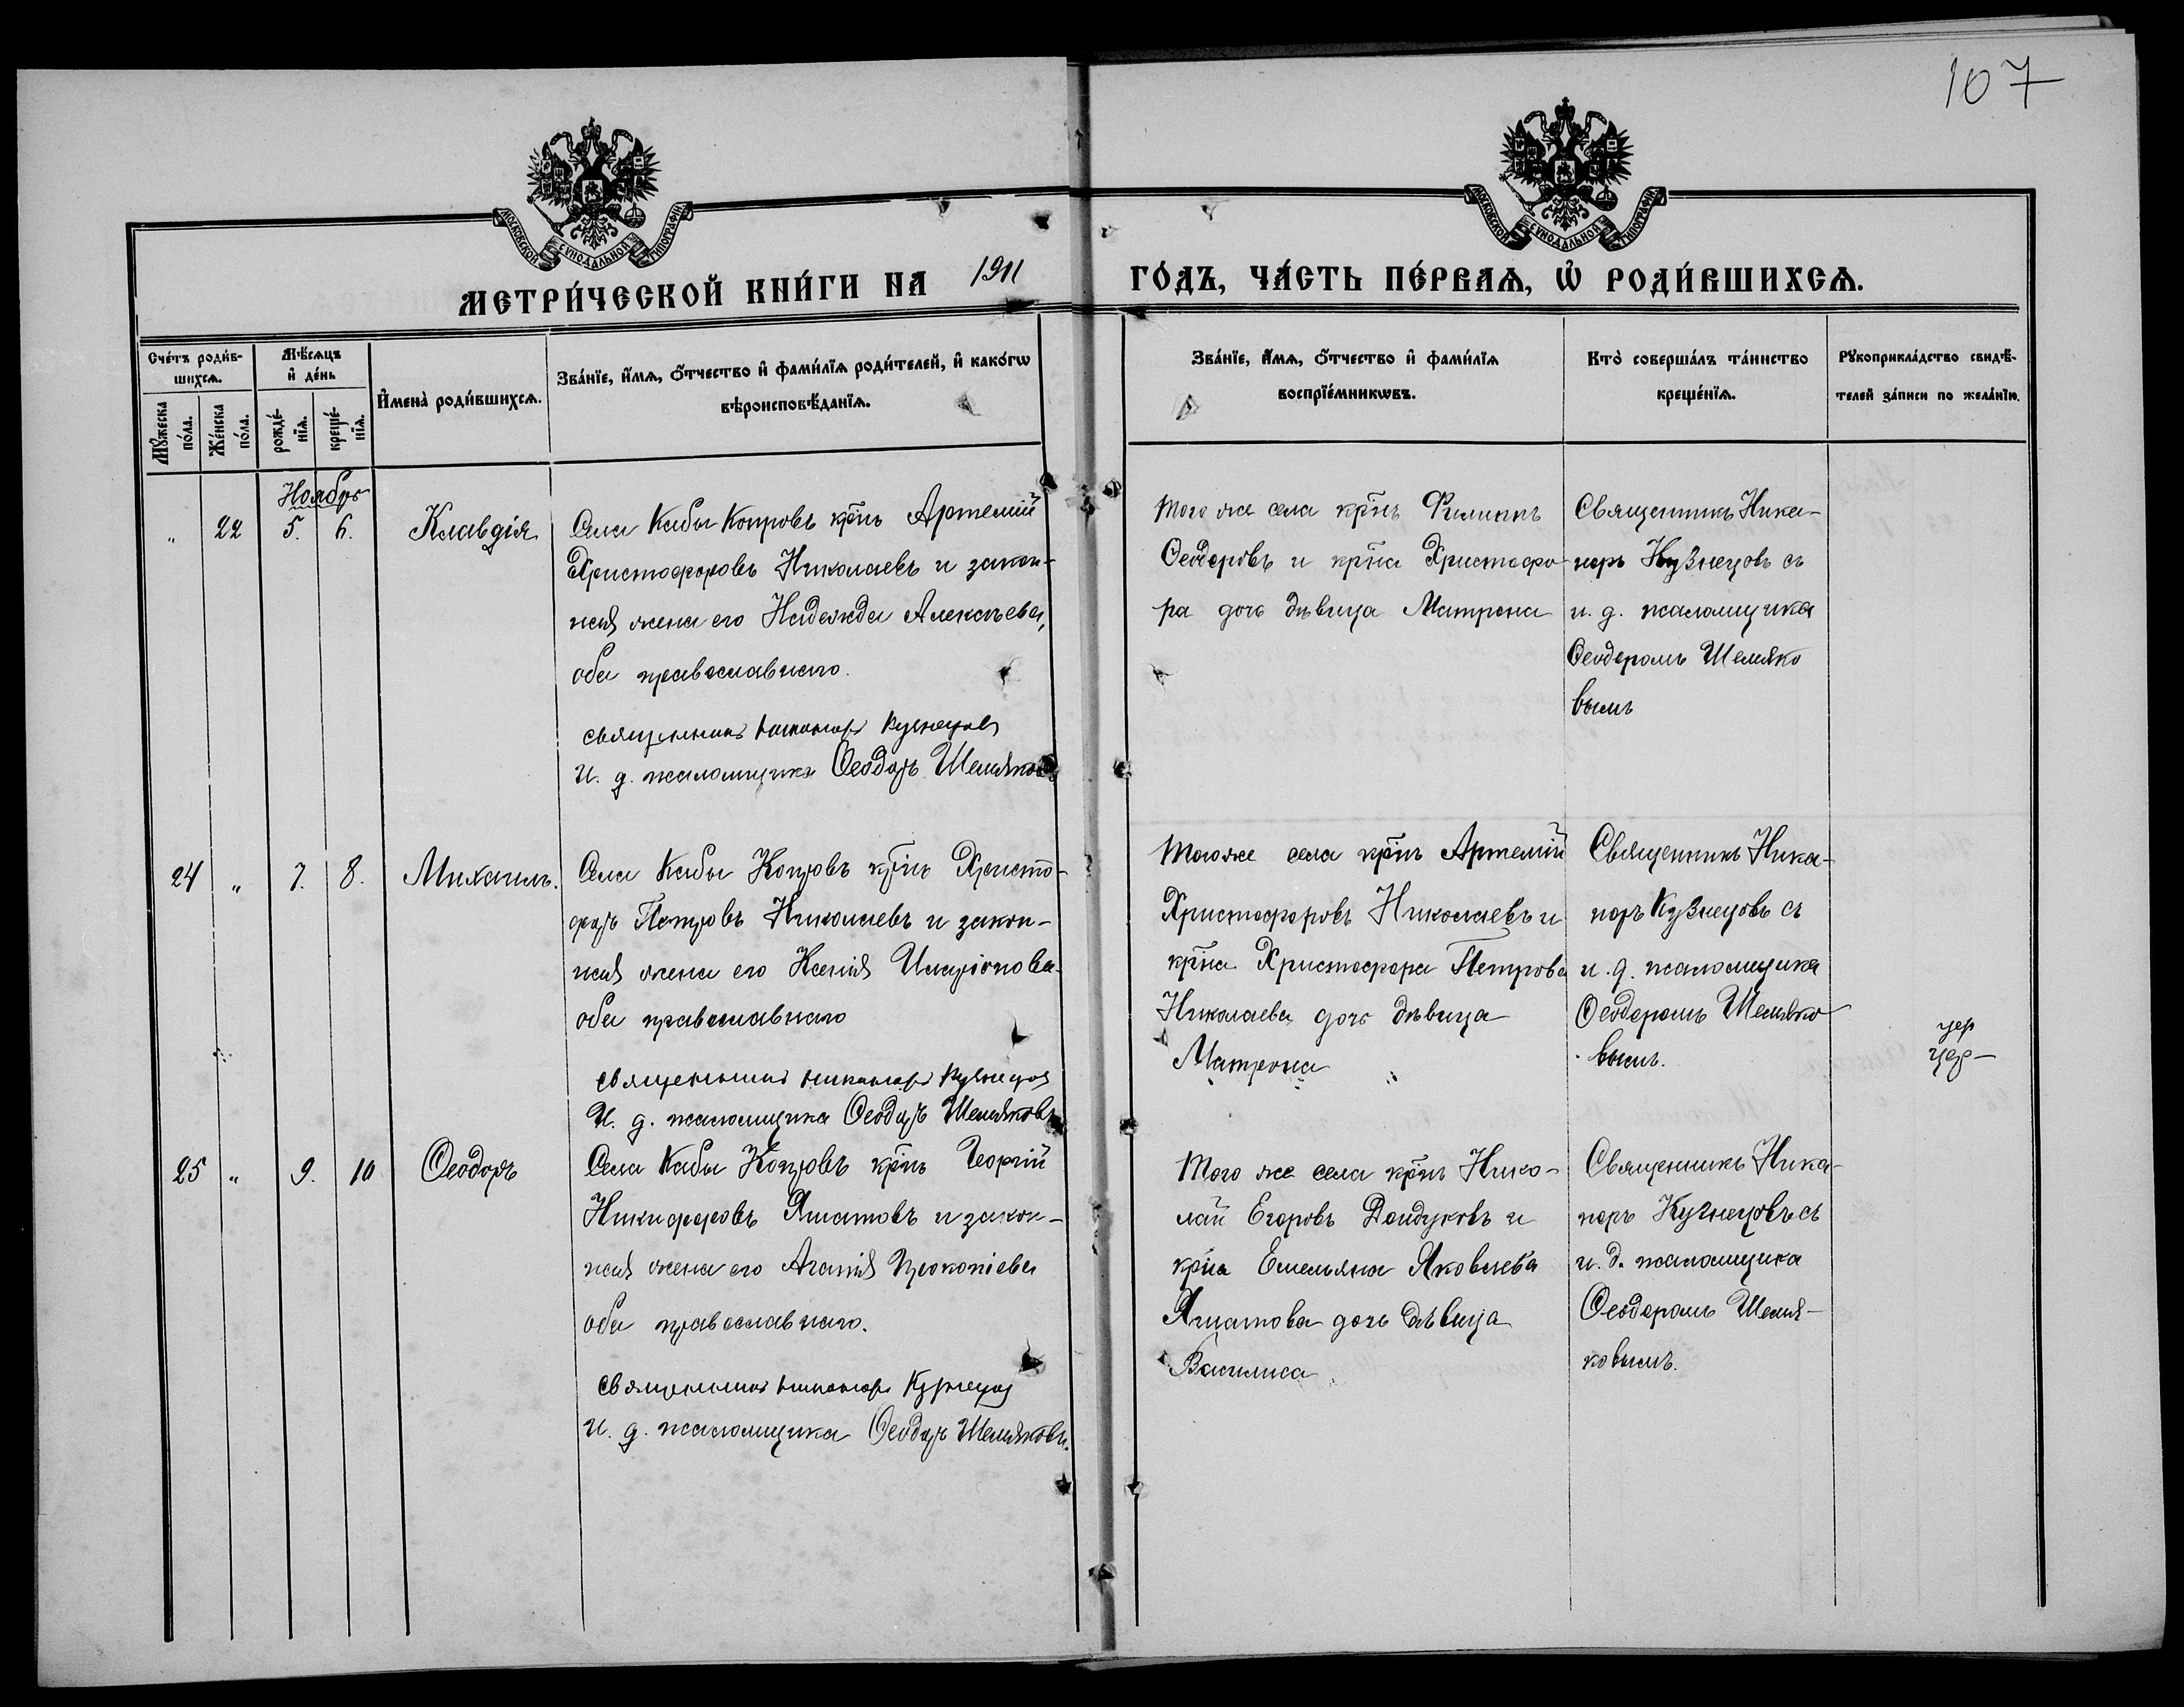 107
МОСКОВСКОЙ СѴНОДАЛЬНОЙ ТИПОГРАФІИ
МОСКОВСКОЙ СѴНОДАЛЬНОЙ ТИПОГРАФІИ
МЕТРИ́ЧЕСКОЙ КНИ́ГИ НА 1911 ГО́ДЪ, ЧА́СТЬ ПЕ́РВАѦ, Ѡ҆ РОДИ́ВШИХСѦ.
Сче́тъ роди́в-
шихсѧ.
Мꙋ́жеска по́ла.
Же́нска по́ла.
Мѣ́сѧцъ
и҆ де́нь
рожде́-
нїѧ.
креще́-
нїѧ.
И҆мена̀ роди́вшихсѧ.
Зва́нїе, и҆́мѧ, ѻ҆́тчество и҆ фами́лїѧ роди́телей, и҆ како́гѡ
вѣроисповѣ́данїѧ.
Зва́нїе, и҆́мѧ, ѻ҆́тчество и҆ фами́лїѧ
воспрїе́мникѡвъ.
Кто̀ соверша́лъ та́инство
креще́нїѧ.
Рꙋкоприкла́дство свидѣ́-
телей за́писи по жела́нїю.
Ноябрь
„ 22 5. 6. Клавдія
Села Кабы Копровъ кр̃нъ Артемій
Христофоровъ Николаевъ и закон-
ная жена его Надежда Алексѣева,
оба православнаго.
священникъ Никаноръ Кузнецовъ
И. д. псаломщика Ѳеодоръ Шемяковъ
Того же села кр̃нъ Филиппъ
Ѳеодоровъ и кр̃на Христофо-
ра дочь дѣвица Матрона
Священникъ Ника-
норъ Кузнецовъ съ
и. д. псаломщика
Ѳеодоромъ Шемяко
вымъ
24 „ 7. 8. Михаилъ.
Села Кабы Копровъ кр̃нъ Христо-
форъ Петровъ Николаевъ и закон-
ная жена его Ксенія Иларіонова
оба православнаго
священникъ Никаноръ Кузнецовъ
И. д. псаломщика Ѳеодоръ Шемяковъ
Того же села кр̃нъ Артемій
Христофоровъ Николаевъ и
кр̃на Христофора Петрова
Николаева дочь дѣвица
Матрона
Священникъ Ника-
норъ Кузнецовъ съ
и. д. псаломщика
Ѳеодоромъ Шемяко
вымъ.
25 „ 9. 10 Ѳеодоръ
Села Кабы Копровъ кр̃нъ Георгій
Никифоровъ Яматовъ и закон-
ная жена его Агапія Прокопіева
оба православнаго.
священникъ Никаноръ Кузнецовъ
И. д. псаломщика Ѳеодоръ Шемяковъ.
Того же села кр̃нъ Нико-
лай Егоровъ Дондуковъ и
кр̃на Емельяна Яковлева
Яматова дочь дѣвица
Василиса
Священникъ Ника-
норъ Кузнецовъ съ
и. д. псаломщика
Ѳеодоромъ Шемя-
ковымъ.